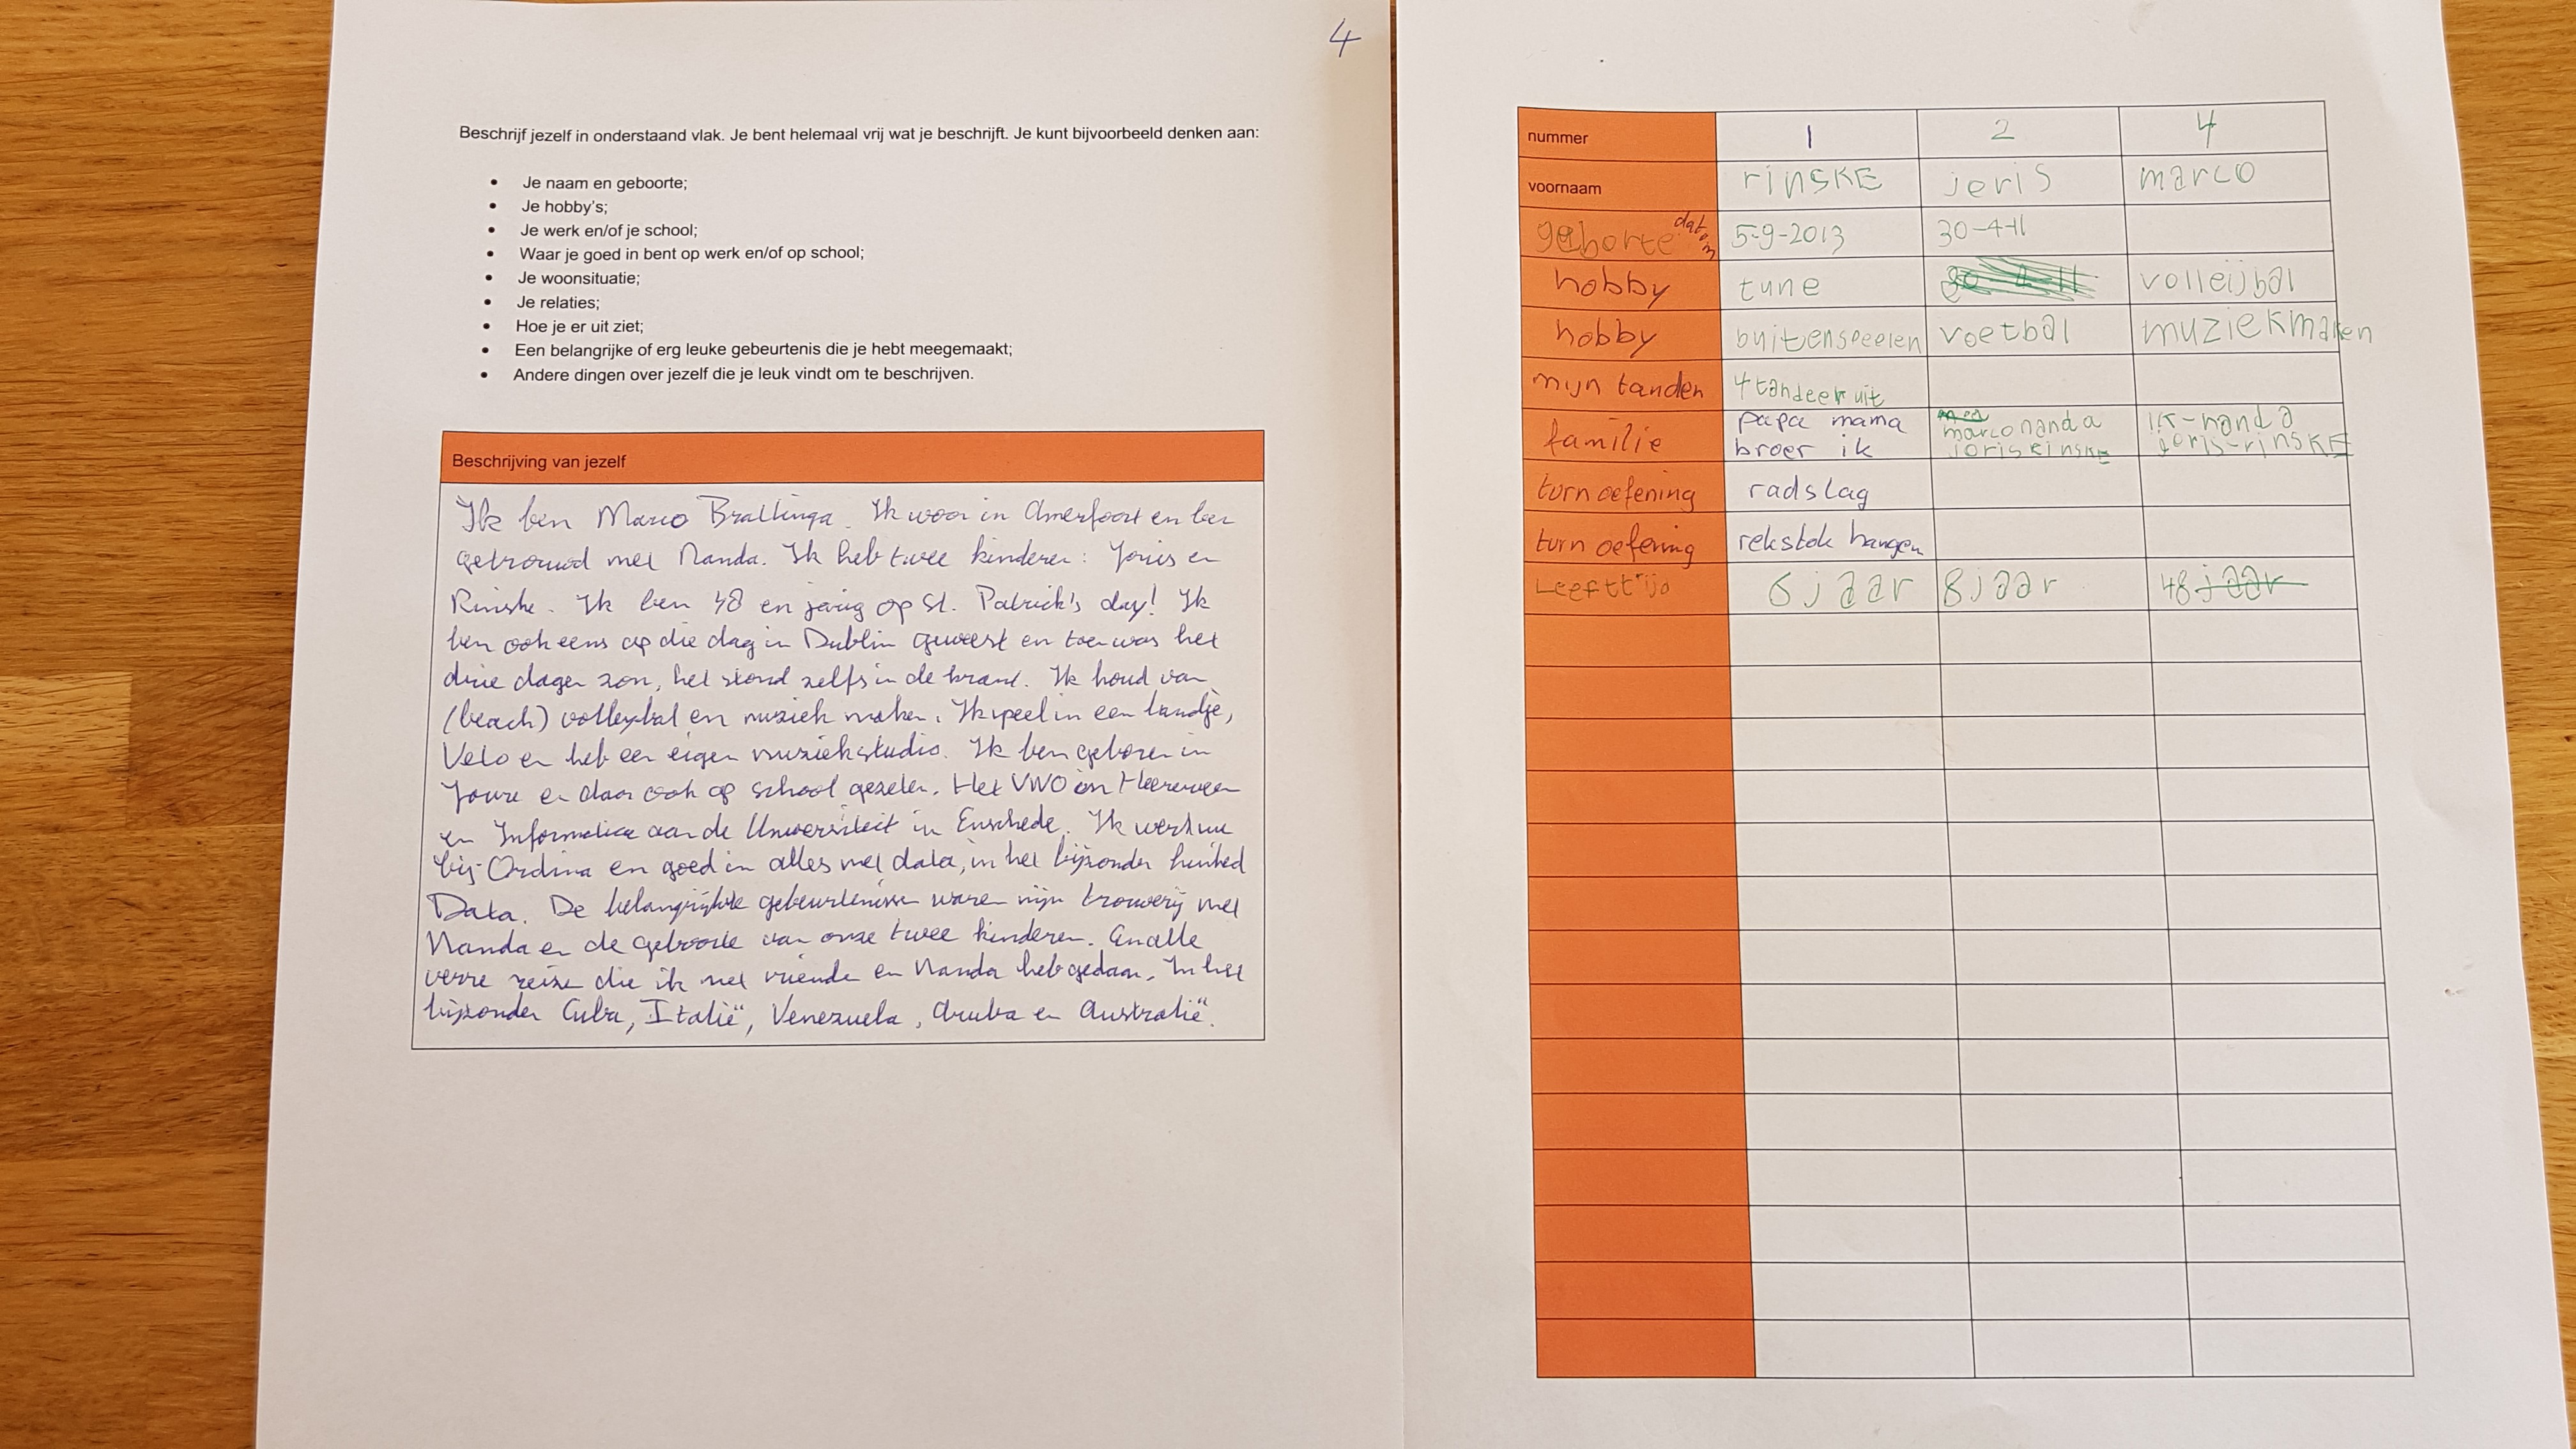 4
Beschrijf jezelf in onderstaand vlak. Je bent helemaal vrij wat je beschrijft. Je kunt bijvoorbeeld denken aan:
• Je naam en geboorte;
• Je hobby's;
• Je werk en/of je school;
• Waar je goed in bent op werk en/of op school;
• Je woonsituatie;
• Je relaties;
• Hoe je er uit ziet;
• Een belangrijke of erg leuke gebeurtenis die je hebt meegemaakt;
• Andere dingen over jezelf die je leuk vindt om te beschrijven.
Beschrijving van jezelf
Ik ben Marco Brattinga. Ik woon in Amersfoort en ben
getrouwd met Nanda. Ik heb twee kinderen: Joris en
Rinske. Ik ben 48 en jarig op St. Patrick's day! Ik
ben ook eens op die dag in Dublin geweest en toen was het
drie dagen zon, het stond zelfs in de krant. Ik houd van
(beach) volleybal en muziek maken. Ik speel in een bandje,
Velo en heb een eigen muziekstudio. Ik ben geboren in
Joure en daar ook op school gezeten. Het VWO in Heerenveen
en Informatica aan de Universiteit in Enschede. Ik werk nu
bij Ordina en goed in alles met data, in het bijzonder linked
Data. De belangrijkste gebeurtenissen waren mijn trouwerij met
Nanda en de geboorte van onze twee kinderen. En alle
verre reizen die ik met vrienden en Nanda heb gedaan. In het
bijzonder Cuba, Italië, Venezuela, Aruba en Australië.
nummer 1 2 4
voornaam rinsKE joris marco
geborte datom 5-9-2013 30-4-11
hobby tune 30-4-11 volleijbal
hobby buitenspeelen voetbal muziekmaken
mijn tanden 4 tandeer uit
familie papa mama broer ik marco nanda joris rinske ik-nanda joris-rinskE
turn oefening radslag
turn oefening rekstok hangen
Leefttijd 6 jaar 8 jaar 48 jaar